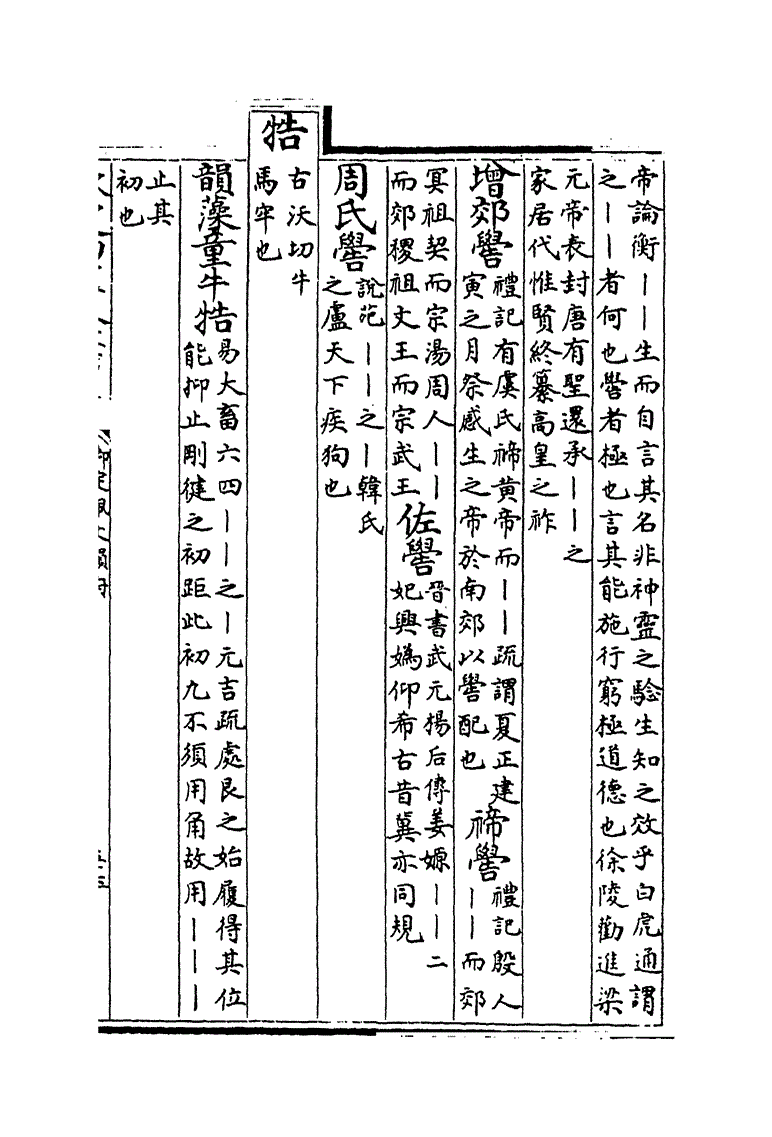 帝論衡丨丨生而自言其名非神靈之驗生知之效乎白虎通謂
之丨丨者何也嚳者極也言其能施行窮極道德也徐陵勸進梁
元帝表封唐有聖還承丨丨之
家居代惟賢終纂高皇之祚
增郊嚳
禮記有虞氏禘黄帝而丨丨疏謂夏正建
寅之月祭感生之帝於南郊以嚳配也
禘嚳
禮記殷人
丨丨而郊
冥祖契而宗湯周人丨丨
而郊稷祖文王而宗武王
佐嚳
晉書武元楊后傳姜嫄丨丨二
妃興媯仰希古昔冀亦同規
周氏嚳
說苑丨丨之丨韓氏
之盧天下疾狗也
牿
古沃切牛
馬牢也
韻藻童牛牿
易大畜六四丨丨之丨元吉疏處艮之始履得其位
能抑止剛健之初距此初九不須用角故用丨丨丨
止其
初也